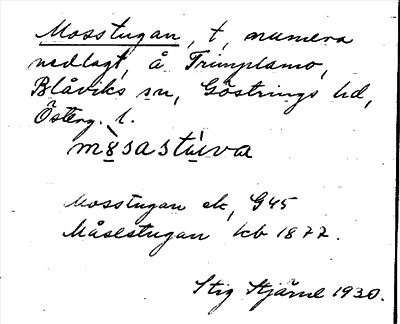 Mosstugan, t, numera
nedlagt, å Trimplamo,
Blåviks sn, Göstrings hd,
Österg. l.
mòsastùva
Mosstugan ek, G45
Måsestugan kb 1877.
Stig Stjärne 1930.